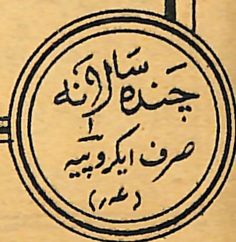 چندہ سالانہ
صرف ایکروپیہ